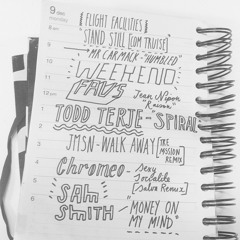 9 dec
monday
"FLIGHT FACILITIES
STAND STILL [COM TRUISE]
"MR CARMACK - "HUMBLED"
WEEKEND
FAVS
Jean Nipon
"Raison"
TODD TERJE - SPIRAL
JMSN - WALK AWAY [THE MISSION REMIX]
Chromeo - Sexy Socialite [Salva Remix]
SAM
SMITH - "MONEY ON
MY MIND"
8
9
10
11
12
1
2
3
4
5
6